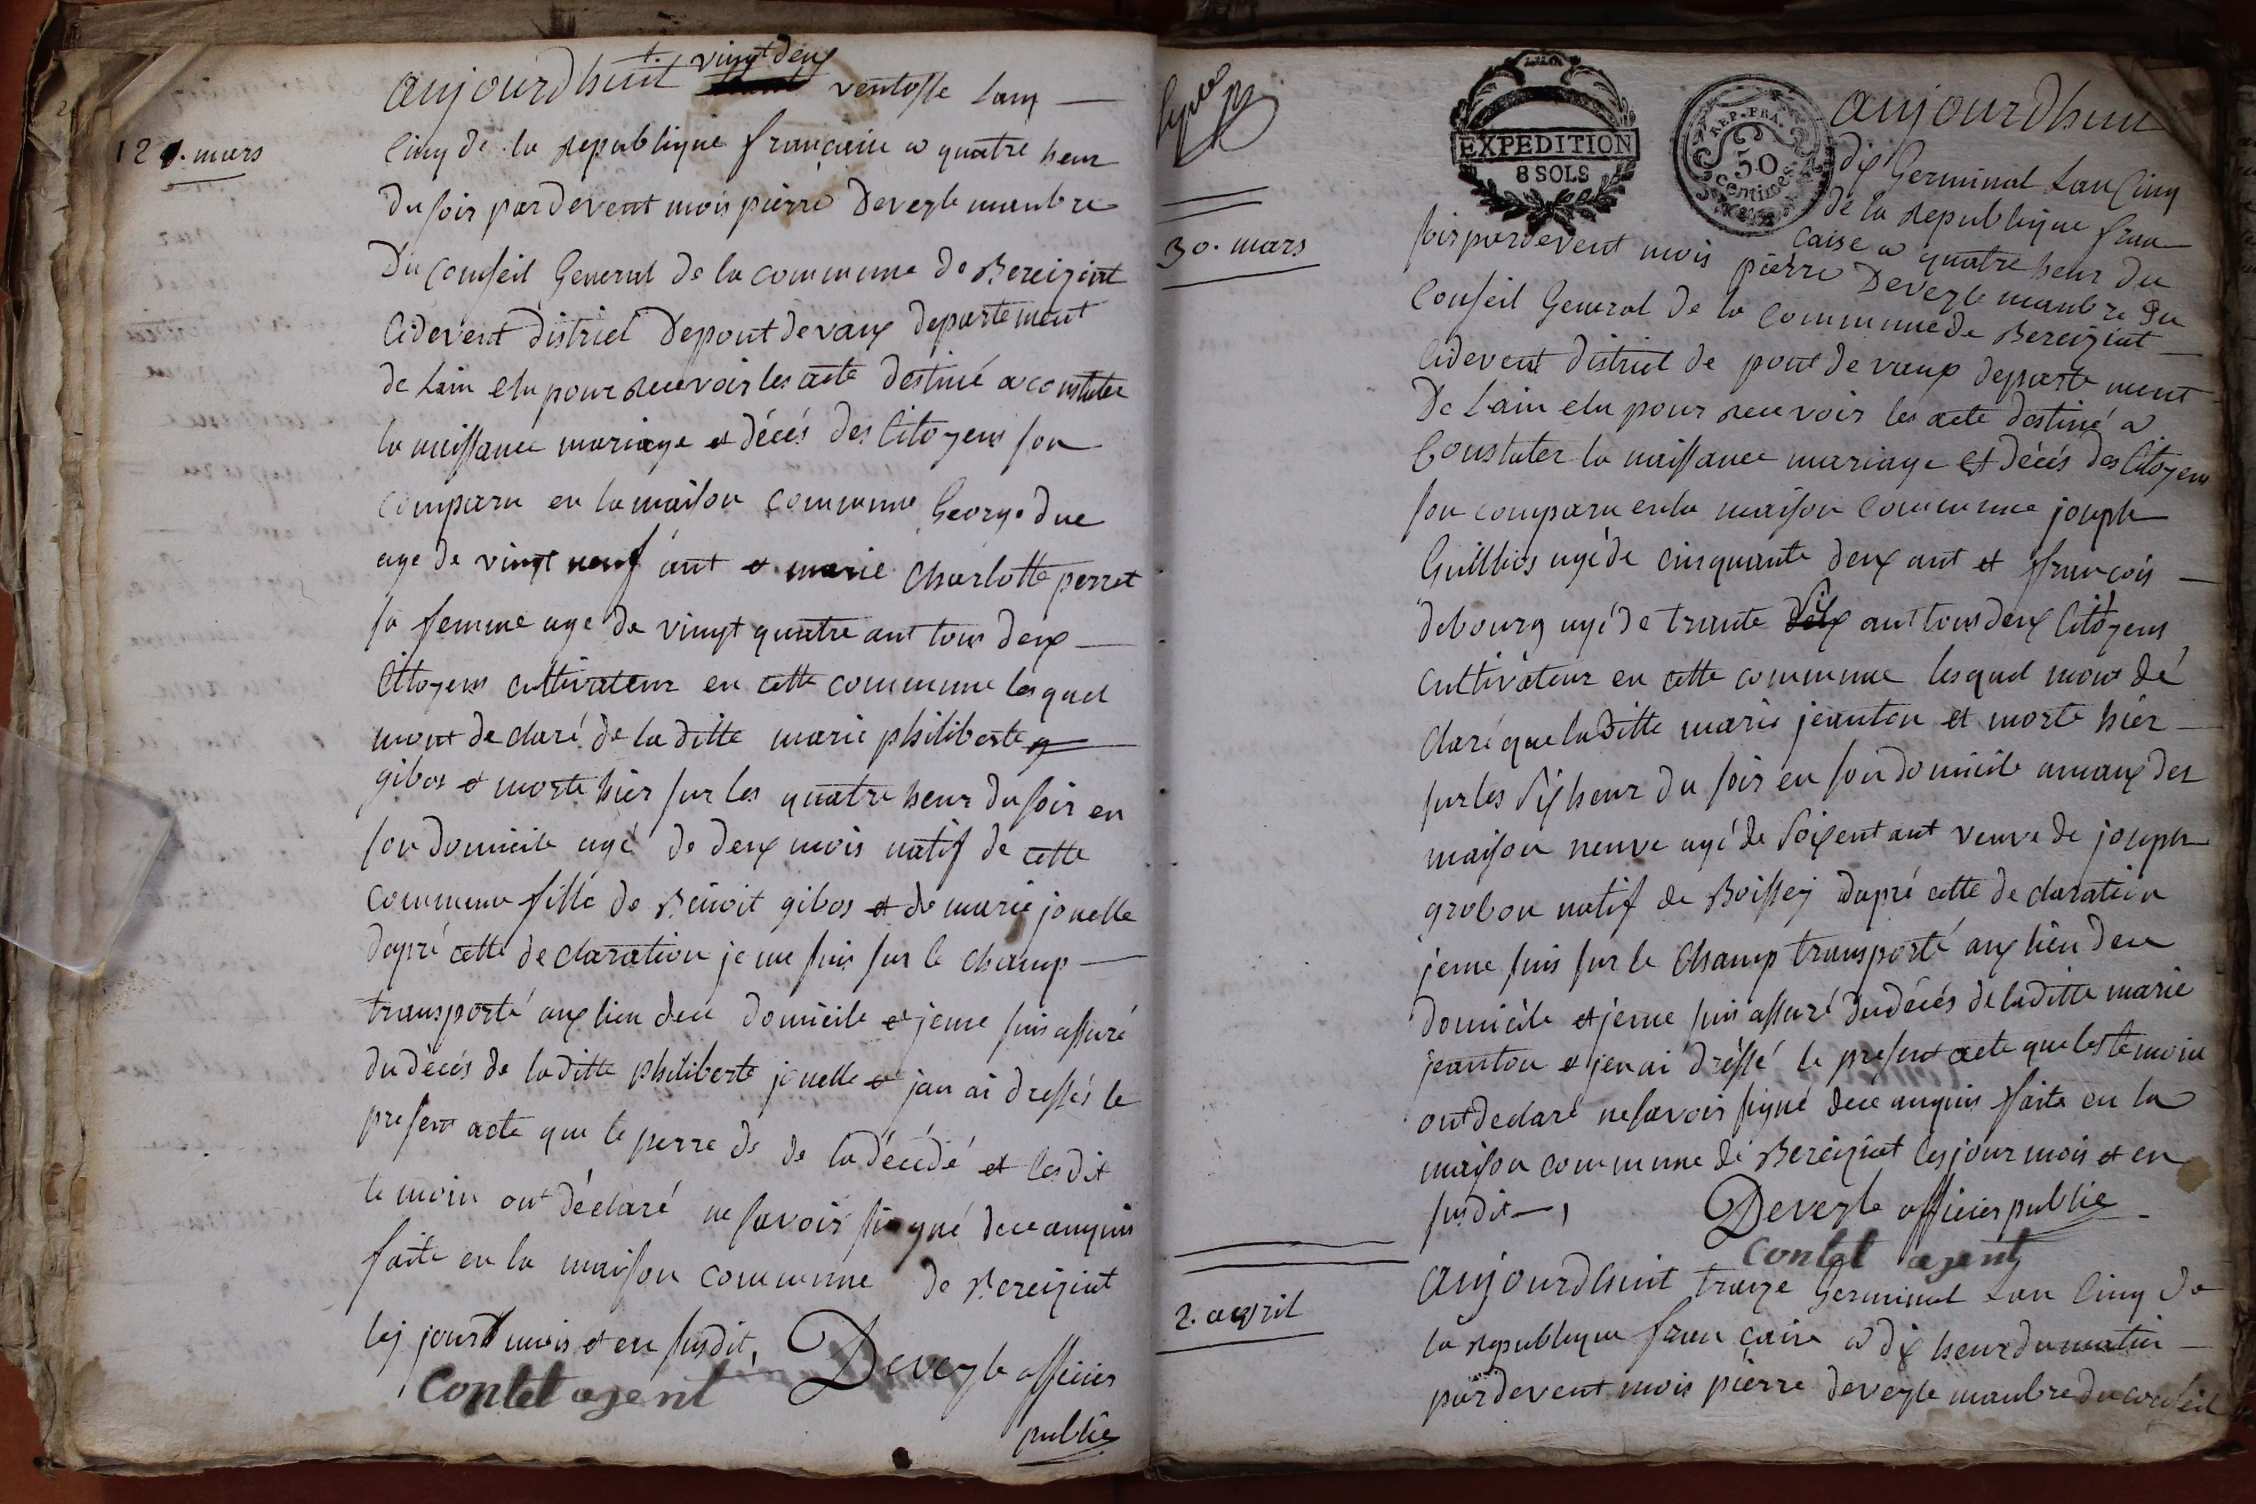 12. mars
aujourdhuit vingt deux ventosse Lan
Cinq de la Republique francaise a quatre heur
du soir par devent mois pierre Deveyle manbre
Du Conseil General de la commune de Bereiziat
Cidevent district Depont de vaux departement
de Lain elu pour recevoir les acte destiné a constater
la naissance mariage et décés des Citoyens son
comparu en la maison commune George due
age de vingt neuf ant et marie Charlotte perret
sa femme age de vingt quatre ant tous deux
Citoyens cultivateur en cette commune lesquel
mont declaré de la ditte marie philiberte
gibos et morte hier sur les quatre heur du soir en
son domicile agé de deux mois natif de cette
commune fille de Benoit gibos et de marie jonelle
dapré cette declaration je me suis sur le champ
transporté aux lieu dece domicile et jeme suis assuré
du décés de la ditte philiberte jonelle et jan ai dressés le
present acte que le perre de de la décédé et les dit
temoin ont déclaré ne savoir signé dece anquis
faite en la maison commune de Bereiziat
les jour mois et en susdit,
Deveyle officier
public
Contet agent
30. mars
EXPEDITION
8 SOLS
REP. FRA.
50
centimes
aujourdhuit
dix Germinal Lan Cinq
de la Republique fran
caise a quatre heur du
soir par devent mois pierre Deveyle manbre du
Conseil General de la commune de Bereiziat
Cidevent district de pont de vaux departement
De Lain elu pour recevoir les acte destiné a
Constater la naissance mariage et décés des Citoyens
son comparu en la maison commune joseph
Guillbios agé de cinquante deux ant et francois
debourg agé de trante six ant tous deux Citoyens
cultivateur en cette commune lesquel mont dé
claré que la ditte marie jeanton et morte hier
sur les six heur du soir en son domicile amaux des
maison neuve agé de soixent ant veuve de joseph
grobon natif de Boissey dapré cette declaration
jeme suis sur le champ transporté aux lieu dece
domicile et jeme suis assuré du décés de la ditte marie
jeanton et jen ai dréssé le present acte que les temoin
ont declaré ne savoir signé dece anquis faite en la
maison commune de Bereiziat les jour mois et en
susdit,
Deveyle officier public
Contet agent
2. avril
aujourdhuit traize Germinal Lan Cinq de
la republique francaise a dix heur du matin
par devent mois pierre deveyle manbre du conseil